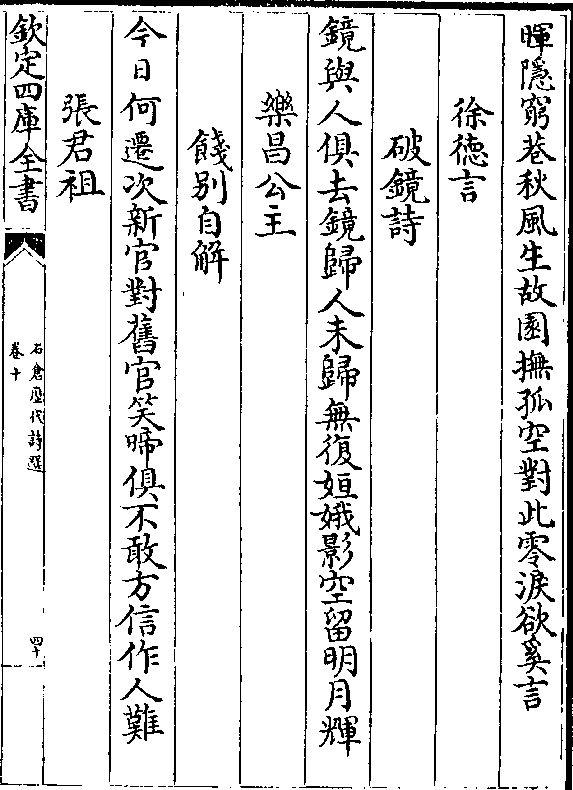 暉隱窮巷秋風生故園撫孤空對此零淚欲奚言
徐德言
破鏡詩
鏡與人俱去鏡歸人未歸無復姮娥影空留明月輝
樂昌公主
餞别自解
今日何遷次新官對舊官笑啼俱不敢方信作人難
張君祖
欽定四庫全書
石倉歷代詩選
卷十
四十